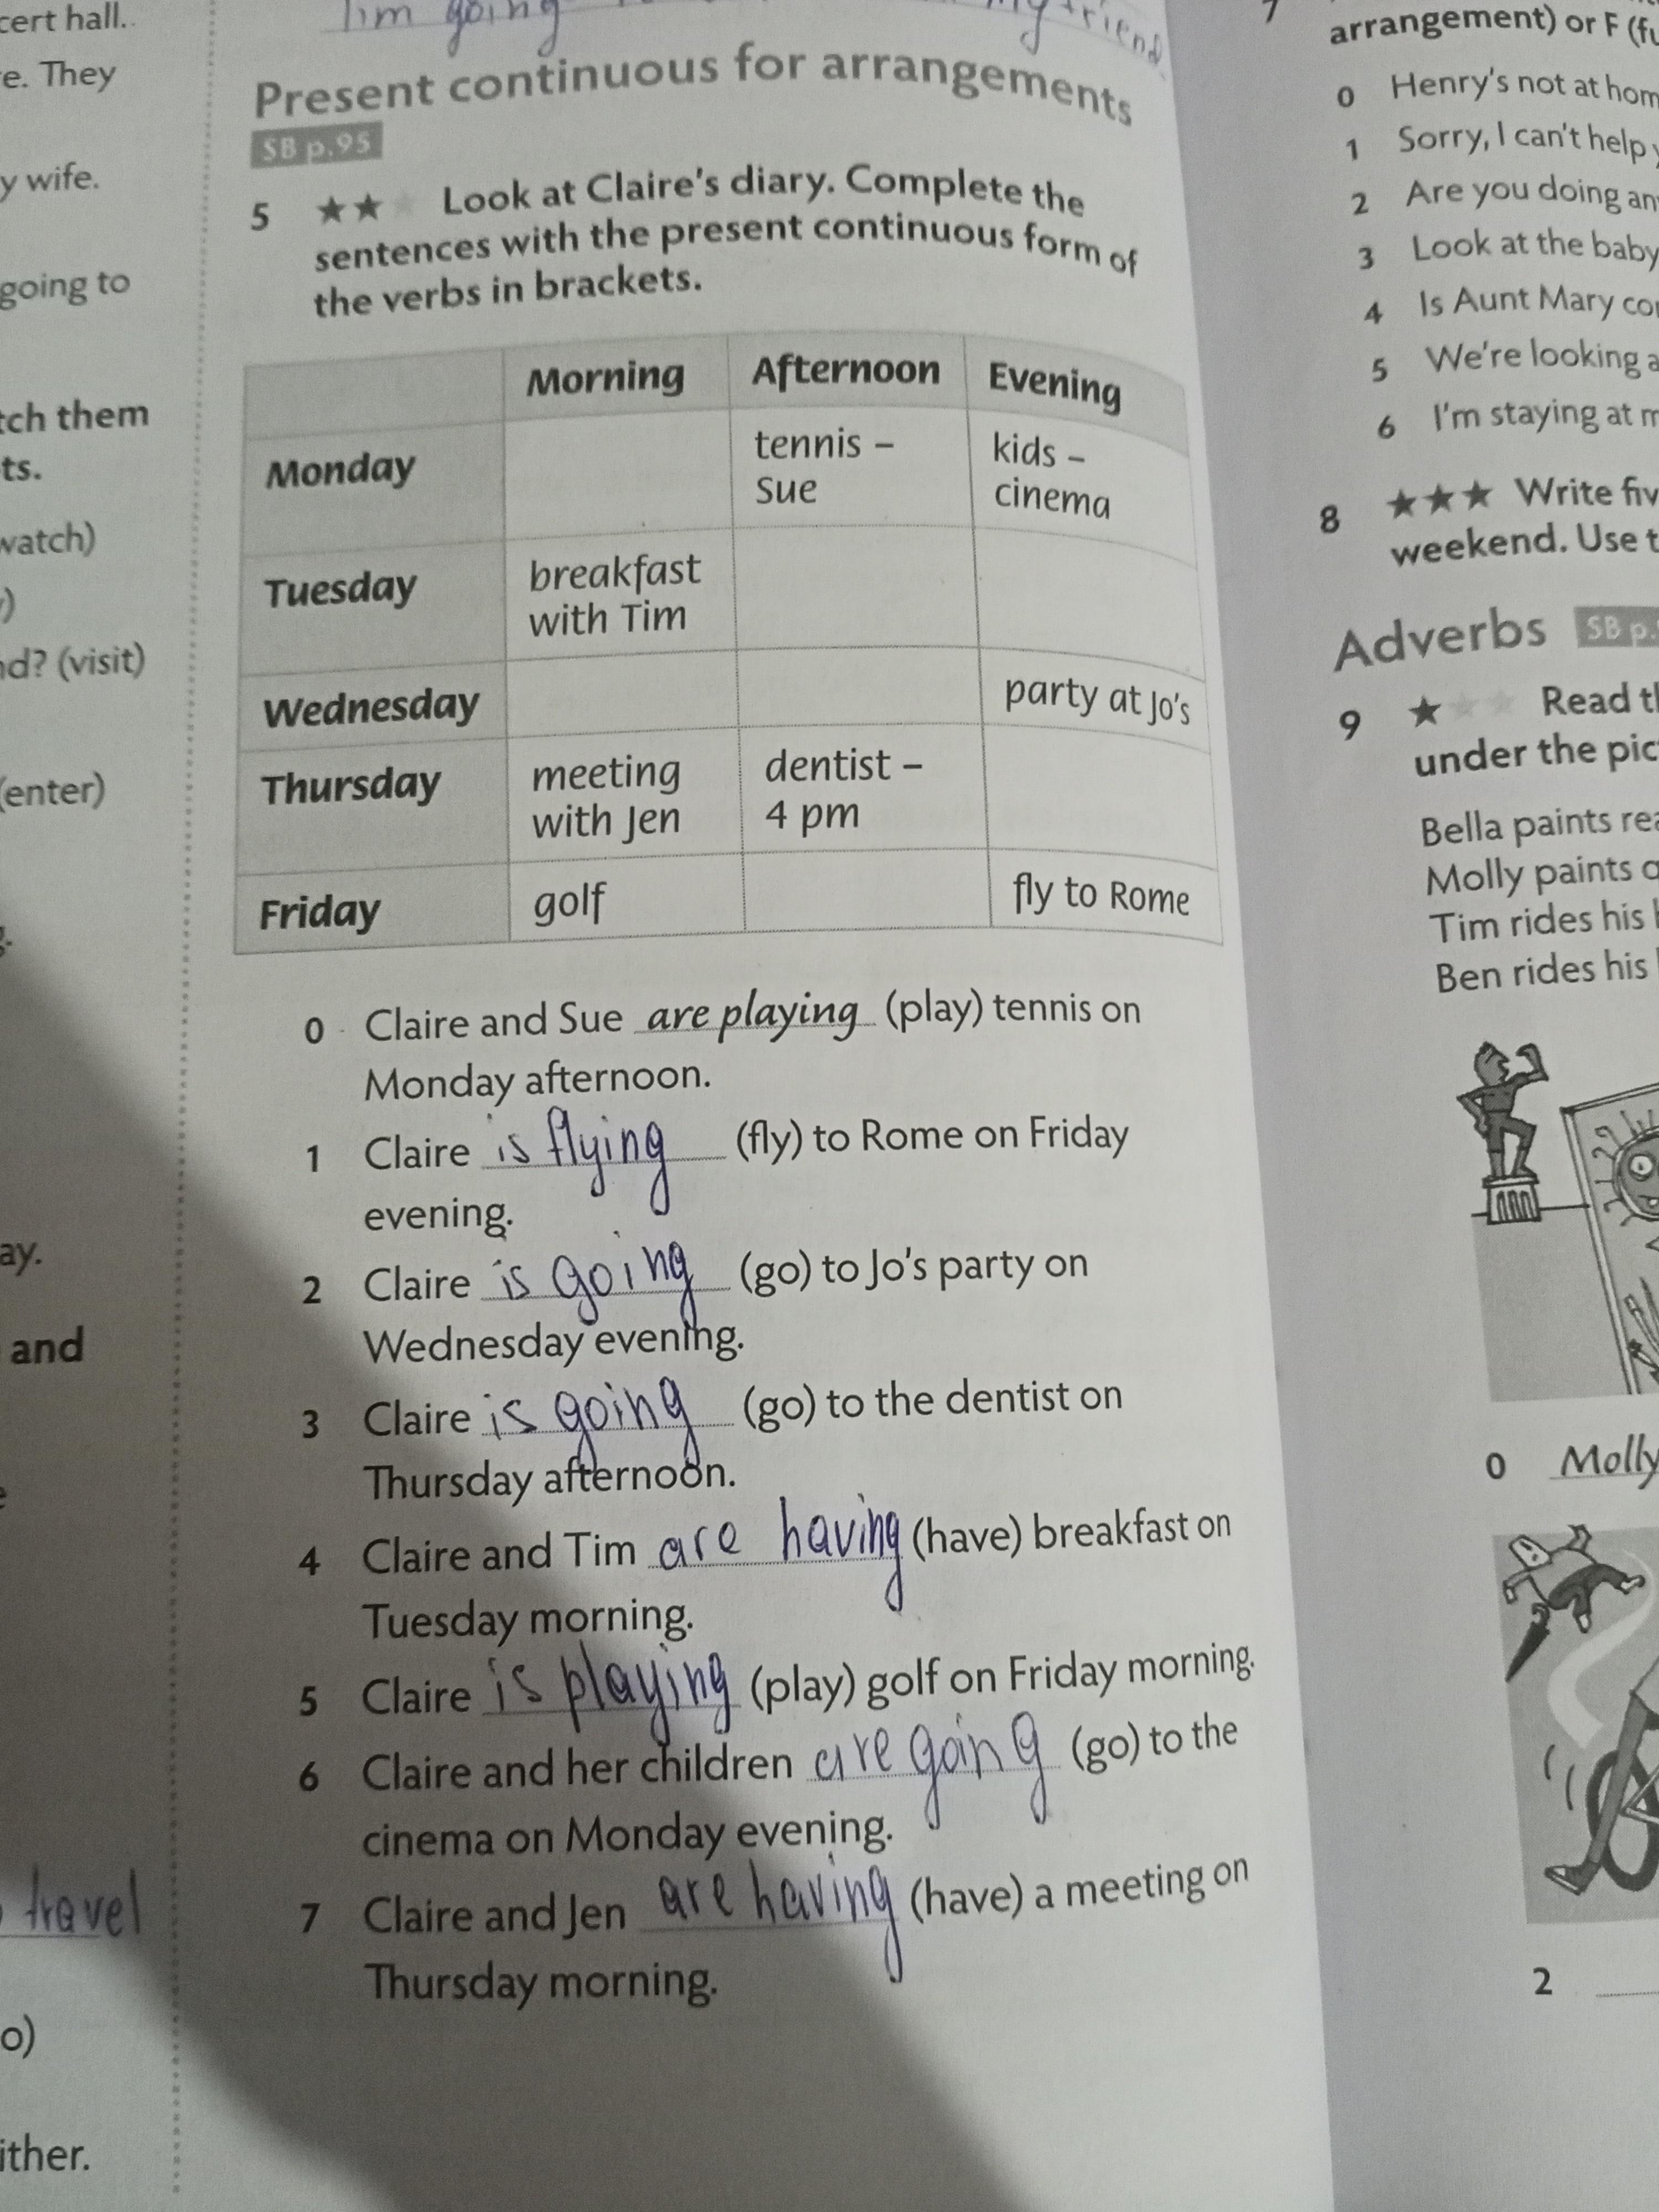 cert hall.
e. They
y wife.
going to
tch them
ts.
watch)
nd? (visit)
(enter)
ay.
and
travel
o)
ither.
I'm going
my friend.
Present continuous for arrangements
SB p.95
5 ★★★ Look at Claire's diary. Complete the
sentences with the present continuous form of
the verbs in brackets.
Morning Afternoon Evening
Monday tennis – Sue kids – cinema
Tuesday breakfast with Tim
Wednesday party at Jo's
Thursday meeting with Jen dentist – 4 pm
Friday golf fly to Rome
0 Claire and Sue are playing (play) tennis on
Monday afternoon.
1 Claire is flying (fly) to Rome on Friday
evening.
2 Claire is going (go) to Jo's party on
Wednesday evening.
3 Claire is going (go) to the dentist on
Thursday afternoon.
4 Claire and Tim are having (have) breakfast on
Tuesday morning.
5 Claire is playing (play) golf on Friday morning.
6 Claire and her children are going (go) to the
cinema on Monday evening.
7 Claire and Jen are having (have) a meeting on
Thursday morning.
7
arrangement) or F (fu
0 Henry's not at hom
1 Sorry, I can't help y
2 Are you doing an
3 Look at the baby
4 Is Aunt Mary co
5 We're looking a
6 I'm staying at m
8 ★★★ Write fiv
weekend. Use t
Adverbs SB p.
9 ★★★ Read th
under the pic
Bella paints rea
Molly paints
Tim rides his
Ben rides his
0 Molly
2